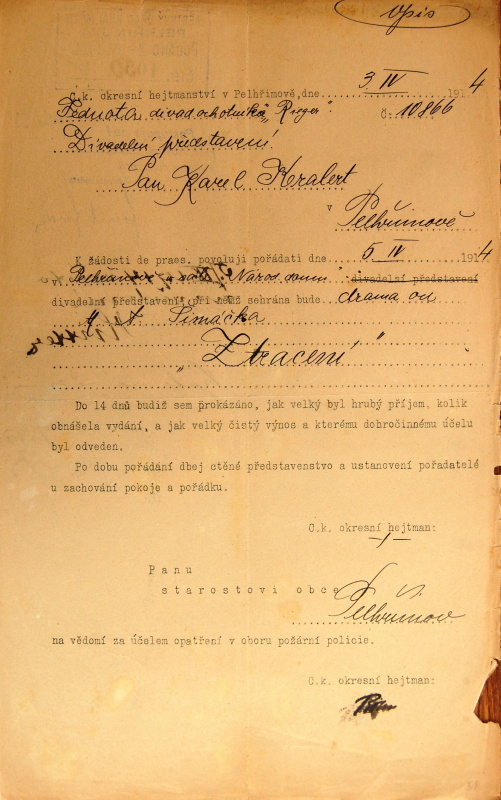 Opis
C.k. okresní hejtmanství v Pelhřimově, dne 3 IV 1914
Jednota divad. ochotníků „Rieger“. Č: 10866
Divadelní představení.
Pan Karel Kralert
v Pelhřimově
K žádosti de praes. povoluji pořádati dne 5 IV 1914
v Pelhřimově Národ. domu divadelní představení
divadelní představení při němž sehrána bude drama od
Šimáčka
„Ztracení“
Do 14 dnů budiž sem prokázáno, jak velký byl hrubý příjem, kolik
obnášela vydání, a jak velký čistý výnos a kterému dobročinnému účelu
byl odveden.
Po dobu pořádání dbej ctěné představenstvo a ustanovení pořadatelé
u zachování pokoje a pořádku.
C.k. okresní hejtman:
Panu
starostovi obce
Pelhřimov
na vědomí za účelem opatření v oboru požární policie.
C.k. okresní hejtman: